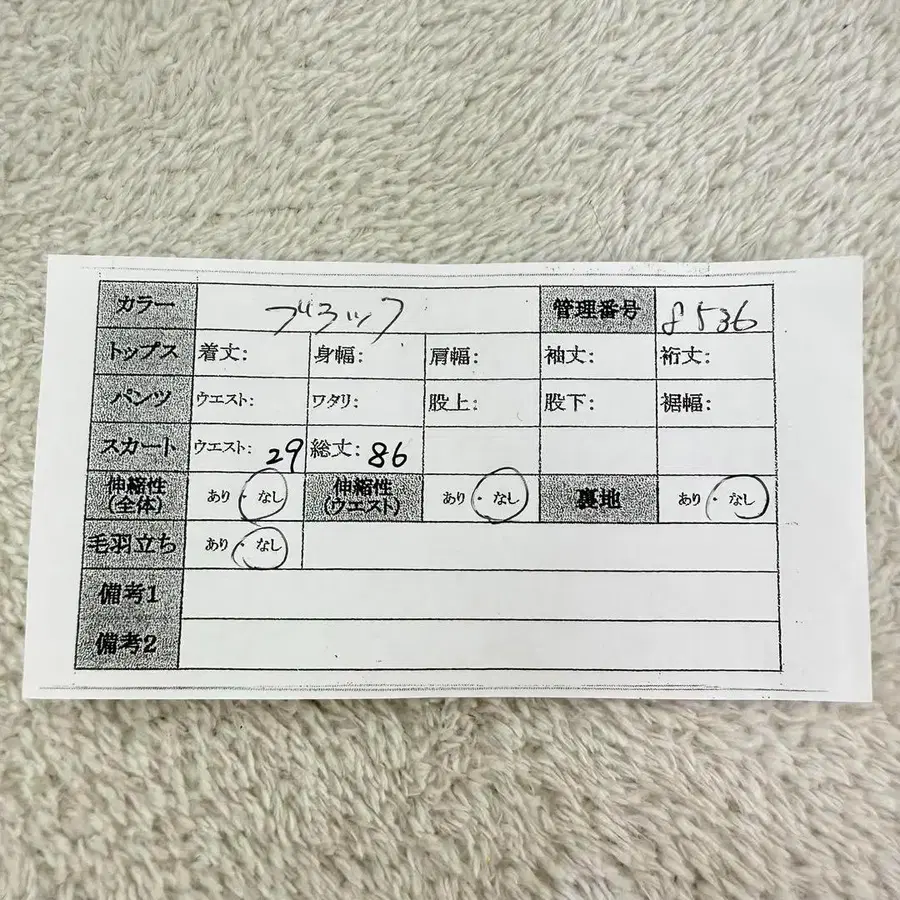 カラー ブラック 管理番号 8536
トップス 着丈: 身幅: 肩幅: 袖丈: 裄丈:
パンツ ウエスト: ワタリ: 股上: 股下: 裾幅:
スカート ウエスト: 29 総丈: 86
伸縮性(全体) あり・なし 伸縮性(ウエスト) あり・なし 裏地 あり・なし
毛羽立ち あり・なし
備考1
備考2